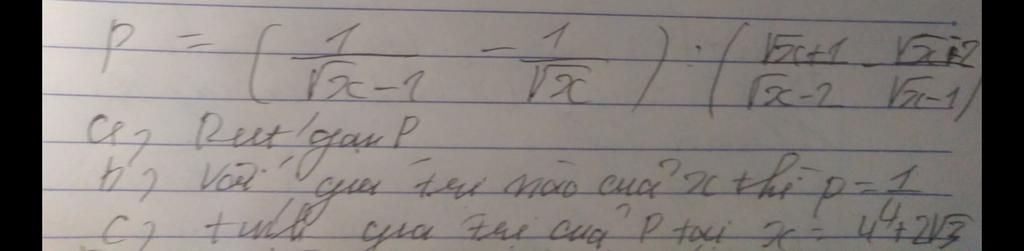 P = ( 1/(√x-1) - 1/√x ) : ( (√x+1)/(√x-2) - (√x+2)/(√x-1) )
a, Rút gọn P
b, Với giá trị nào của x thì P = 1/4
c, tính giá trị của P tại x = 4+2√3